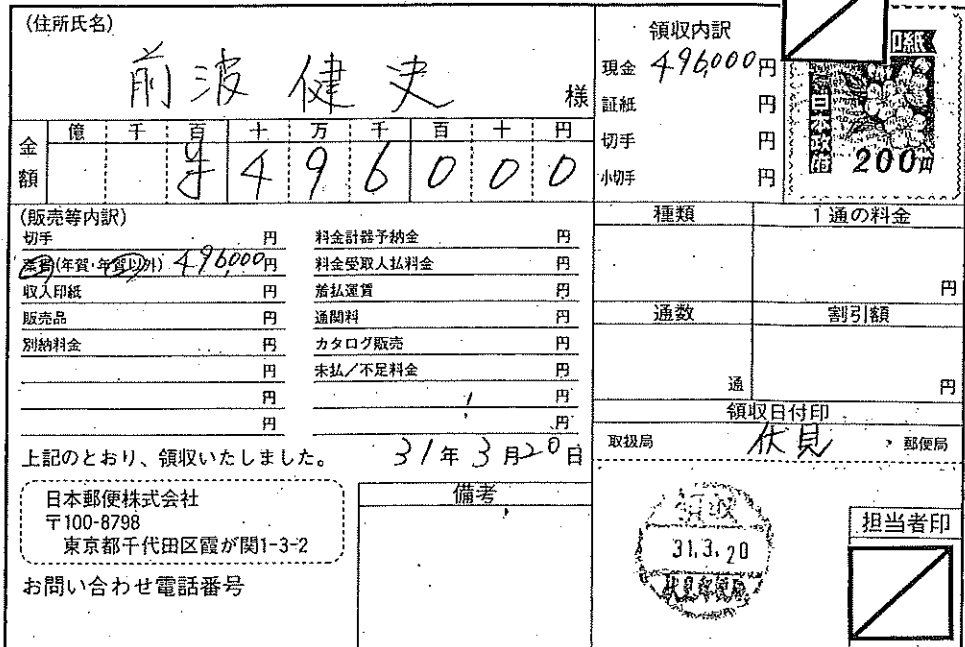 (住所氏名)
前波 健史 様
金額
億 千 百 十 万 千 百 十 円
¥ 4 9 6 0 0 0
領収内訳
現金 496,000円
証紙 円
切手 円
小切手 円
印紙
日本政府
200円
(販売等内訳)
切手 円
葉書(年賀・年賀以外) 496,000円
収入印紙 円
販売品 円
別納料金 円
円
円
円
料金計器予納金 円
料金受取人払料金 円
着払運賃 円
通関料 円
カタログ販売 円
未払/不足料金 円
円
円
種類 1通の料金
円
通数 割引額
通 円
領収日付印
取扱局 伏見 郵便局
上記のとおり、領収いたしました。 31年3月20日
日本郵便株式会社
〒100-8798
東京都千代田区霞が関1-3-2
お問い合わせ電話番号
備考
領収
31.3.20
伏見郵便局
担当者印